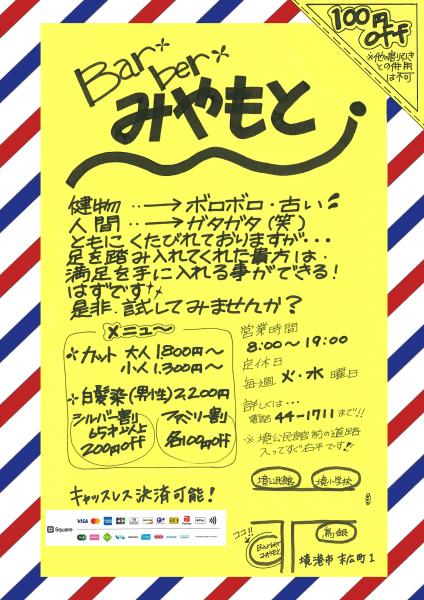 100円
off
※他の割り引き
との併用
は不可
Bar
ber
みやもと
健物‥→ボロボロ・古い!!
人間‥→ガタガタ(笑)
ともにくたびれておりますが・・・
足を踏み入れてくれた貴方は、
満足を手に入れる事ができる!
はずです
是非、試してみませんか?
メニュ〜
カット 大人 1,800円〜
小人 1,300円〜
白髪染(男性)2,200円
シルバー割
65才以上
200円off
ファミリー割
各100円off
キャッスレス決済可能!
営業時間
8:00〜19:00
定休日
毎週 火・水 曜日
詳しくは・・・
電話 44-1711 まで!!
※境公民館前の道路
入ってすぐ右手です!!
境公民館
境小学校
ココ!!
Barber
みやもと
鳥銀
境港市 末広町1
Square
VISA